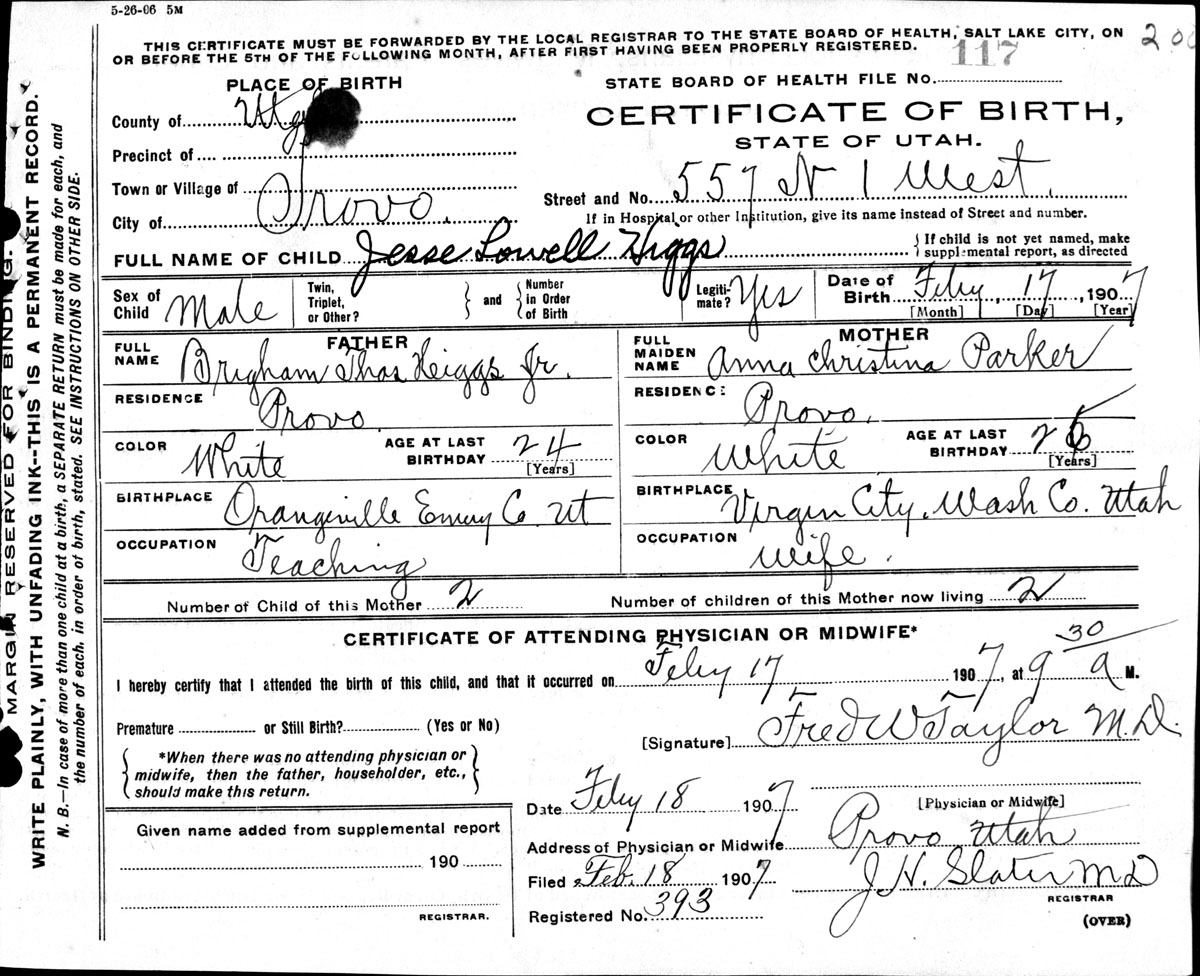 5-26-06 5M
THIS CERTIFICATE MUST BE FORWARDED BY THE LOCAL REGISTRAR TO THE STATE BOARD OF HEALTH, SALT LAKE CITY, ON
OR BEFORE THE 5TH OF THE FOLLOWING MONTH, AFTER FIRST HAVING BEEN PROPERLY REGISTERED.
117
PLACE OF BIRTH
STATE BOARD OF HEALTH FILE No.
County of
CERTIFICATE OF BIRTH,
STATE OF UTAH.
Precinct of
Town or Village of
City of Provo.
Street and No. 557 N 1 West.
If in Hospital or other Institution, give its name instead of Street and number.
FULL NAME OF CHILD Jesse Lowell Higgs
If child is not yet named, make
supplemental report, as directed
Sex of Child Male
Twin, Triplet, or Other? and Number in Order of Birth
Legitimate? Yes
Date of Birth Feby, 17, 1907
[Month] [Day] [Year]
FATHER
FULL NAME Brigham Thos Higgs Jr.
RESIDENCE Provo
COLOR White AGE AT LAST BIRTHDAY 24 [Years]
BIRTHPLACE Orangeville Emery Co. Ut
OCCUPATION Teaching
MOTHER
FULL MAIDEN NAME Anna Christina Parker
RESIDENCE Provo.
COLOR White AGE AT LAST BIRTHDAY 26 [Years]
BIRTHPLACE Virgin City, Wash Co. Utah
OCCUPATION Wife.
Number of Child of this Mother 2 Number of children of this Mother now living 2
CERTIFICATE OF ATTENDING PHYSICIAN OR MIDWIFE*
I hereby certify that I attended the birth of this child, and that it occurred on Feby 17 1907, at 9 30 a M.
Premature or Still Birth? (Yes or No)
[Signature] Fred W Taylor M.D.
*When there was no attending physician or
midwife, then the father, householder, etc.,
should make this return.
[Physician or Midwife]
Date Feby 18 1907
Address of Physician or Midwife Provo Utah
Given name added from supplemental report
190
REGISTRAR.
Filed Feb. 18 1907 J. H. Slater M D
REGISTRAR
Registered No. 393
(OVER)
MARGIN RESERVED FOR BINDING.
WRITE PLAINLY, WITH UNFADING INK--THIS IS A PERMANENT RECORD.
N. B.—In case of more than one child at a birth, a SEPARATE RETURN must be made for each, and
the number of each, in order of birth, stated. SEE INSTRUCTIONS ON OTHER SIDE.